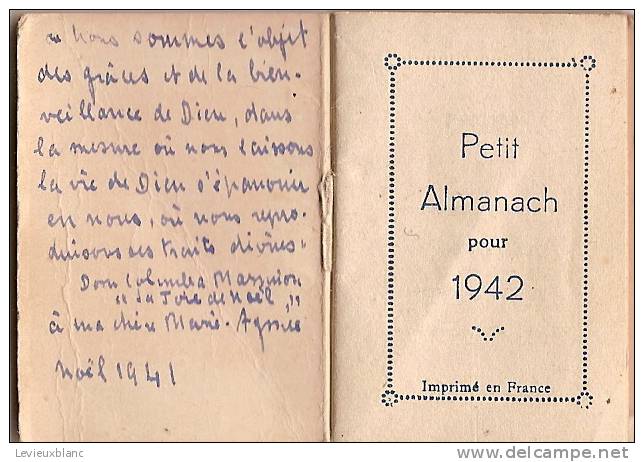 « Nous sommes l'objet
des grâces et de la bien-
veillance de Dieu, dans
la mesure où nous laissons
la vie de Dieu s'épanouir
en nous, où nous repro-
duisons ses traits divins"
Dom Columba Marmion
"La Joie de Noël"
à ma chère Marie-Agnès
Noël 1941
Petit
Almanach
pour
1942
Imprimé en France
Levieuxblanc
delcampe.net